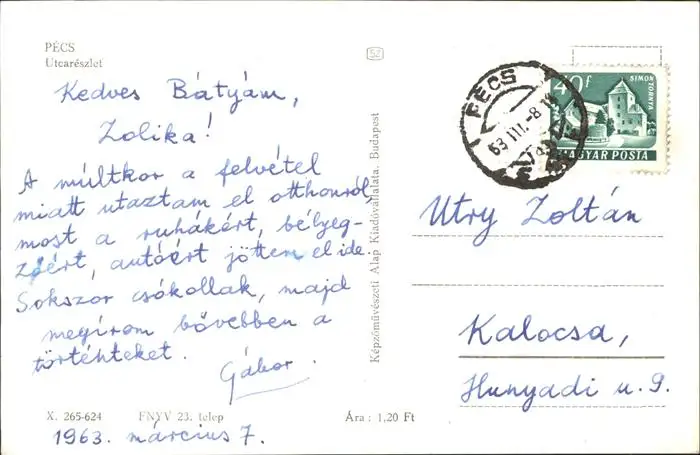 PÉCS
Utcarészlet
Kedves Bátyám,
Zolika!
A múltkor a felvétel
miatt utaztam el otthonról
most a ruhákért, bélyeg-
zőért, autóért jöttem el ide.
Sokszor csókollak, majd
megírom bővebben a
történteket.
Gábor.
X. 265-624 FNYV 23. telep Ára : 1,20 Ft
1963. március 7.
Képzőművészeti Alap Kiadóvállalata, Budapest
52
PÉCS
63 III.-8
40f
SIMON
TORNYA
MAGYAR POSTA
Utry Zoltán
Kalocsa,
Hunyadi u. 9.